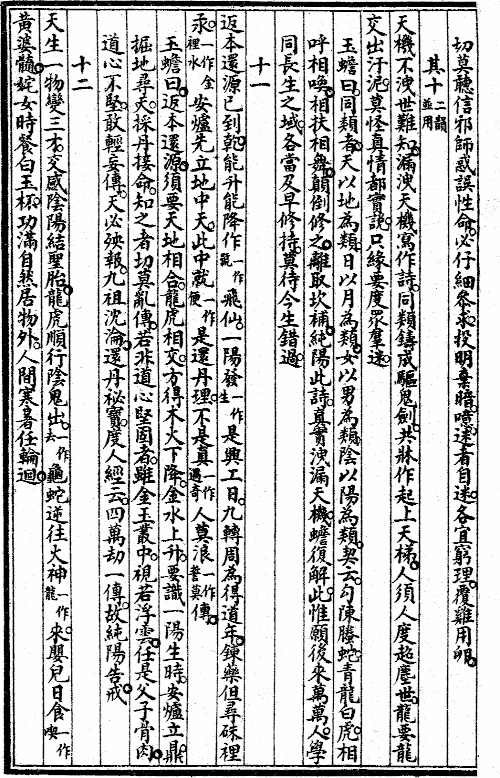 切莫聽信邪師惑誤性命必仔細叅求投明棄暗噫迷者自迷各宜窮理覆雞用卵
其十二韻並用
天機不洩世難知漏洩天機寫作詩同類鑄成驅鬼劍共牀作起上天梯人須人度超塵世龍要龍
交出汗泥莫怪真情都實說只緣要度眾羣迷
玉蟾曰同類者天以地為類日以月為類女以男為類陰以陽為類契云勾陳螣蛇青龍白虎相
呼相喚相扶相與顛倒修之離取坎補純陽此詩真實洩漏天機蟾復解此惟願後來萬萬人學
同長生之域各當及早修持莫待今生錯過
十一
返本還源已到乾能升能降作一作號飛仙一陽發一作生是興工日九轉周為得道年鍊藥但尋硃裡
汞一作金裡水安爐先立地中天此中就一作便是還丹理不是真一作遇奇人莫浪一作誓莫傳
玉蟾曰返本還源須要天地相合龍虎相交方得木火下降金水上升要識一陽生時安爐立鼎
掘地尋天採丹接命知之者切莫亂傳若非道心堅固者雖金玉叢中視若浮雲任是父子骨肉
道心不堅敢輕妄傳天必殃報九祖沈淪還丹祕寶度人經云四萬劫一傳故純陽告戒
十二
天生一物變三才交感陰陽結聖胎龍虎順行陰鬼出一作去龜蛇逆往火神一作龍來嬰兒日食一作喫
黃婆髓姹女時餐白玉杯功滿自然居物外人間寒暑任輪迴